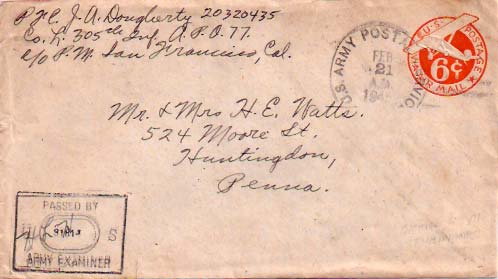 Pfc. J. A. Dougherty 20320435
Co. L. 305th Inf. A.P.O. 77.
c/o P.M. San Francisco, Cal.
U.S. ARMY POSTAL
FEB
21
194
U.S. POSTAGE
6¢
VIA AIR MAIL
Mr. & Mrs H. E. Watts.
524 Moore St.
Huntingdon,
Penna.
PASSED BY
S
ARMY EXAMINER